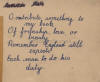 O contribute something to
my book
Of friendship, love, or
beauty
Remember England still
expects
Each man to do his
duty.